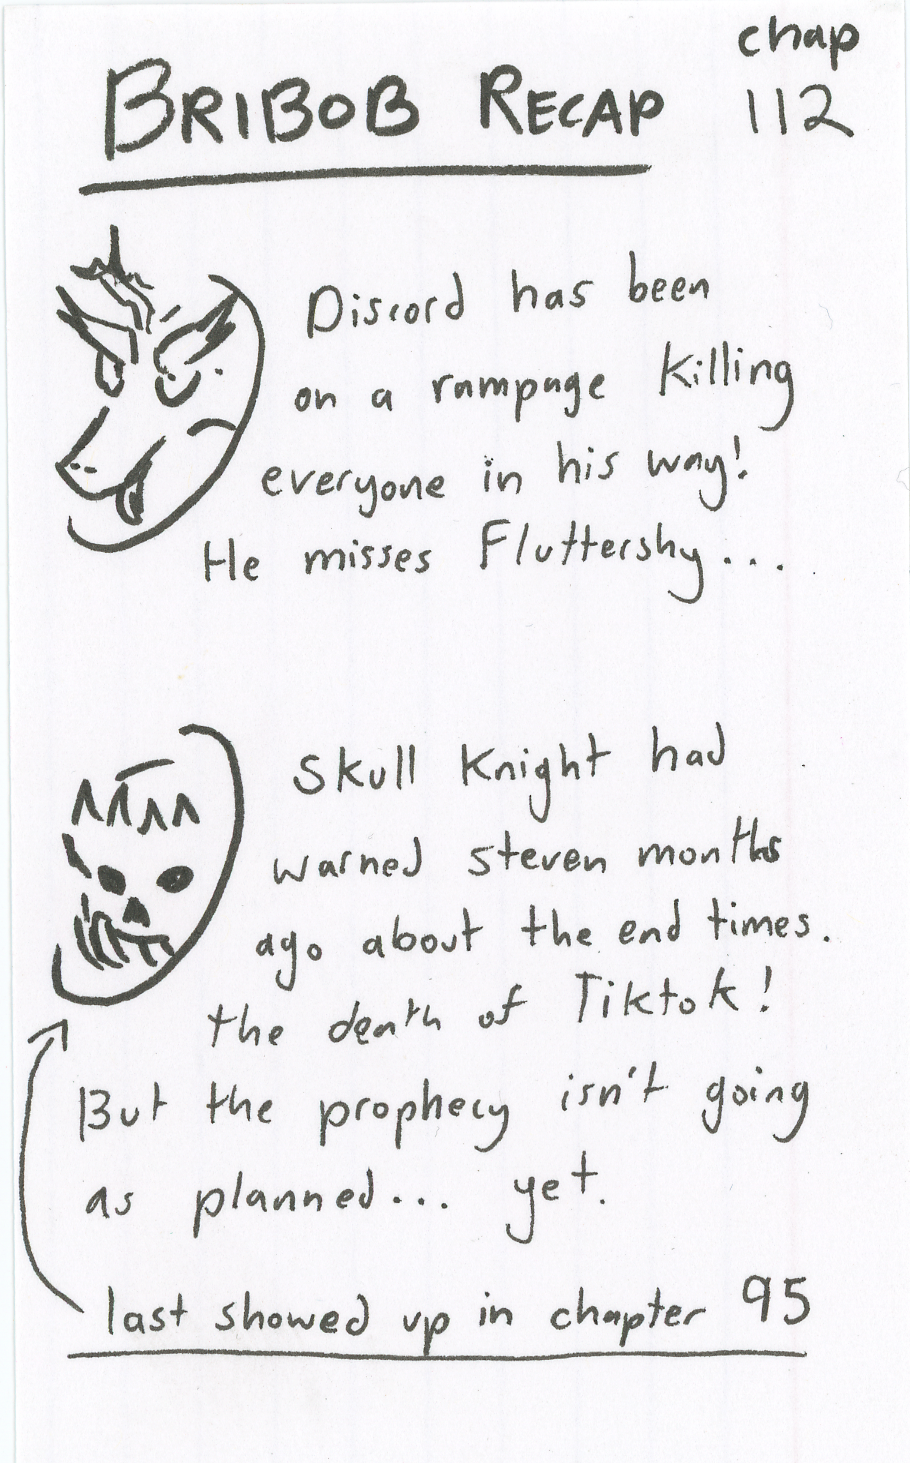 chap
BRIBOB RECAP 112
Discord has been
on a rampage killing
everyone in his way!
He misses Fluttershy...
Skull Knight had
warned steven months
ago about the end times.
the death of Tiktok!
But the prophecy isn't going
as planned... yet.
last showed up in chapter 95